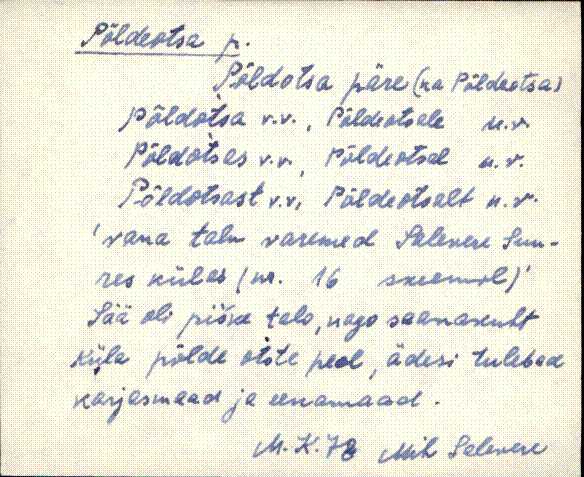 Põldeotsa p.
Põldotsa päre (ka Põldeotsa)
Põldotsa v.v., Põldeotsale u.v.
Põldotsas v.v., Põldeotsal u.v.
Põldotsast v.v., Põldeotsalt u.v.
'vana talu varemed Salevere Suu-
res külas (nr. 16 skeemil)'
Sää oli piśke talo, nago saanakult
küla põlde otste peal, ädesi tulebad
karjasmaad ja eenamaad.
M. K. 78 Mih Salevere